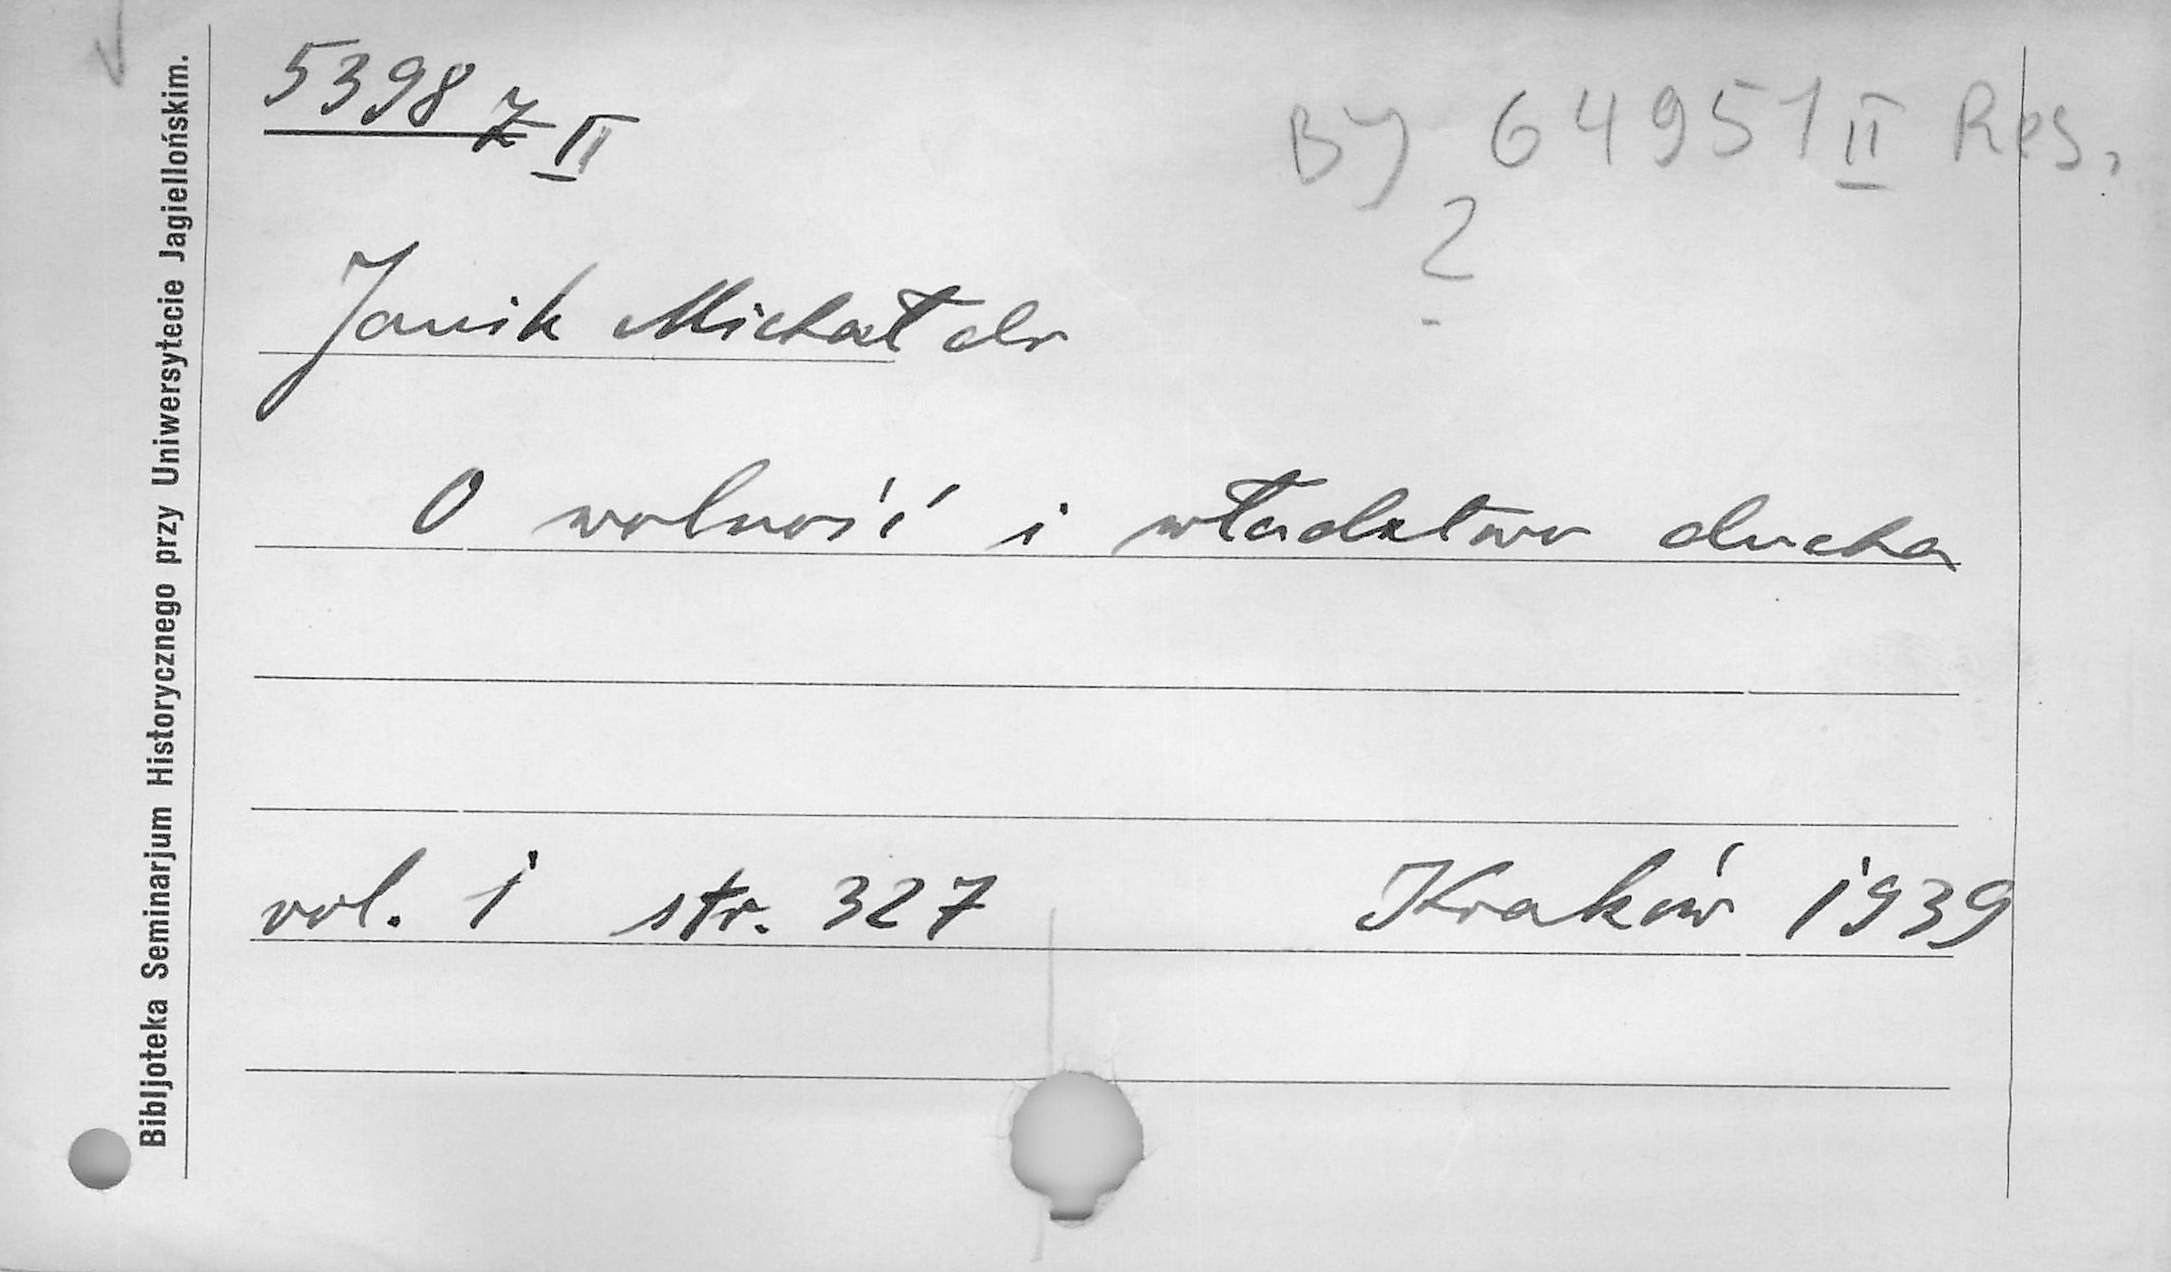 5398 Z II
BJ 64951 II Res.
?
Janik Michał dr
O wolność i władztwo ducha
vol. 1 str. 327 Kraków 1939
Bibljoteka Seminarjum Historycznego przy Uniwersytecie Jagiellońskim.